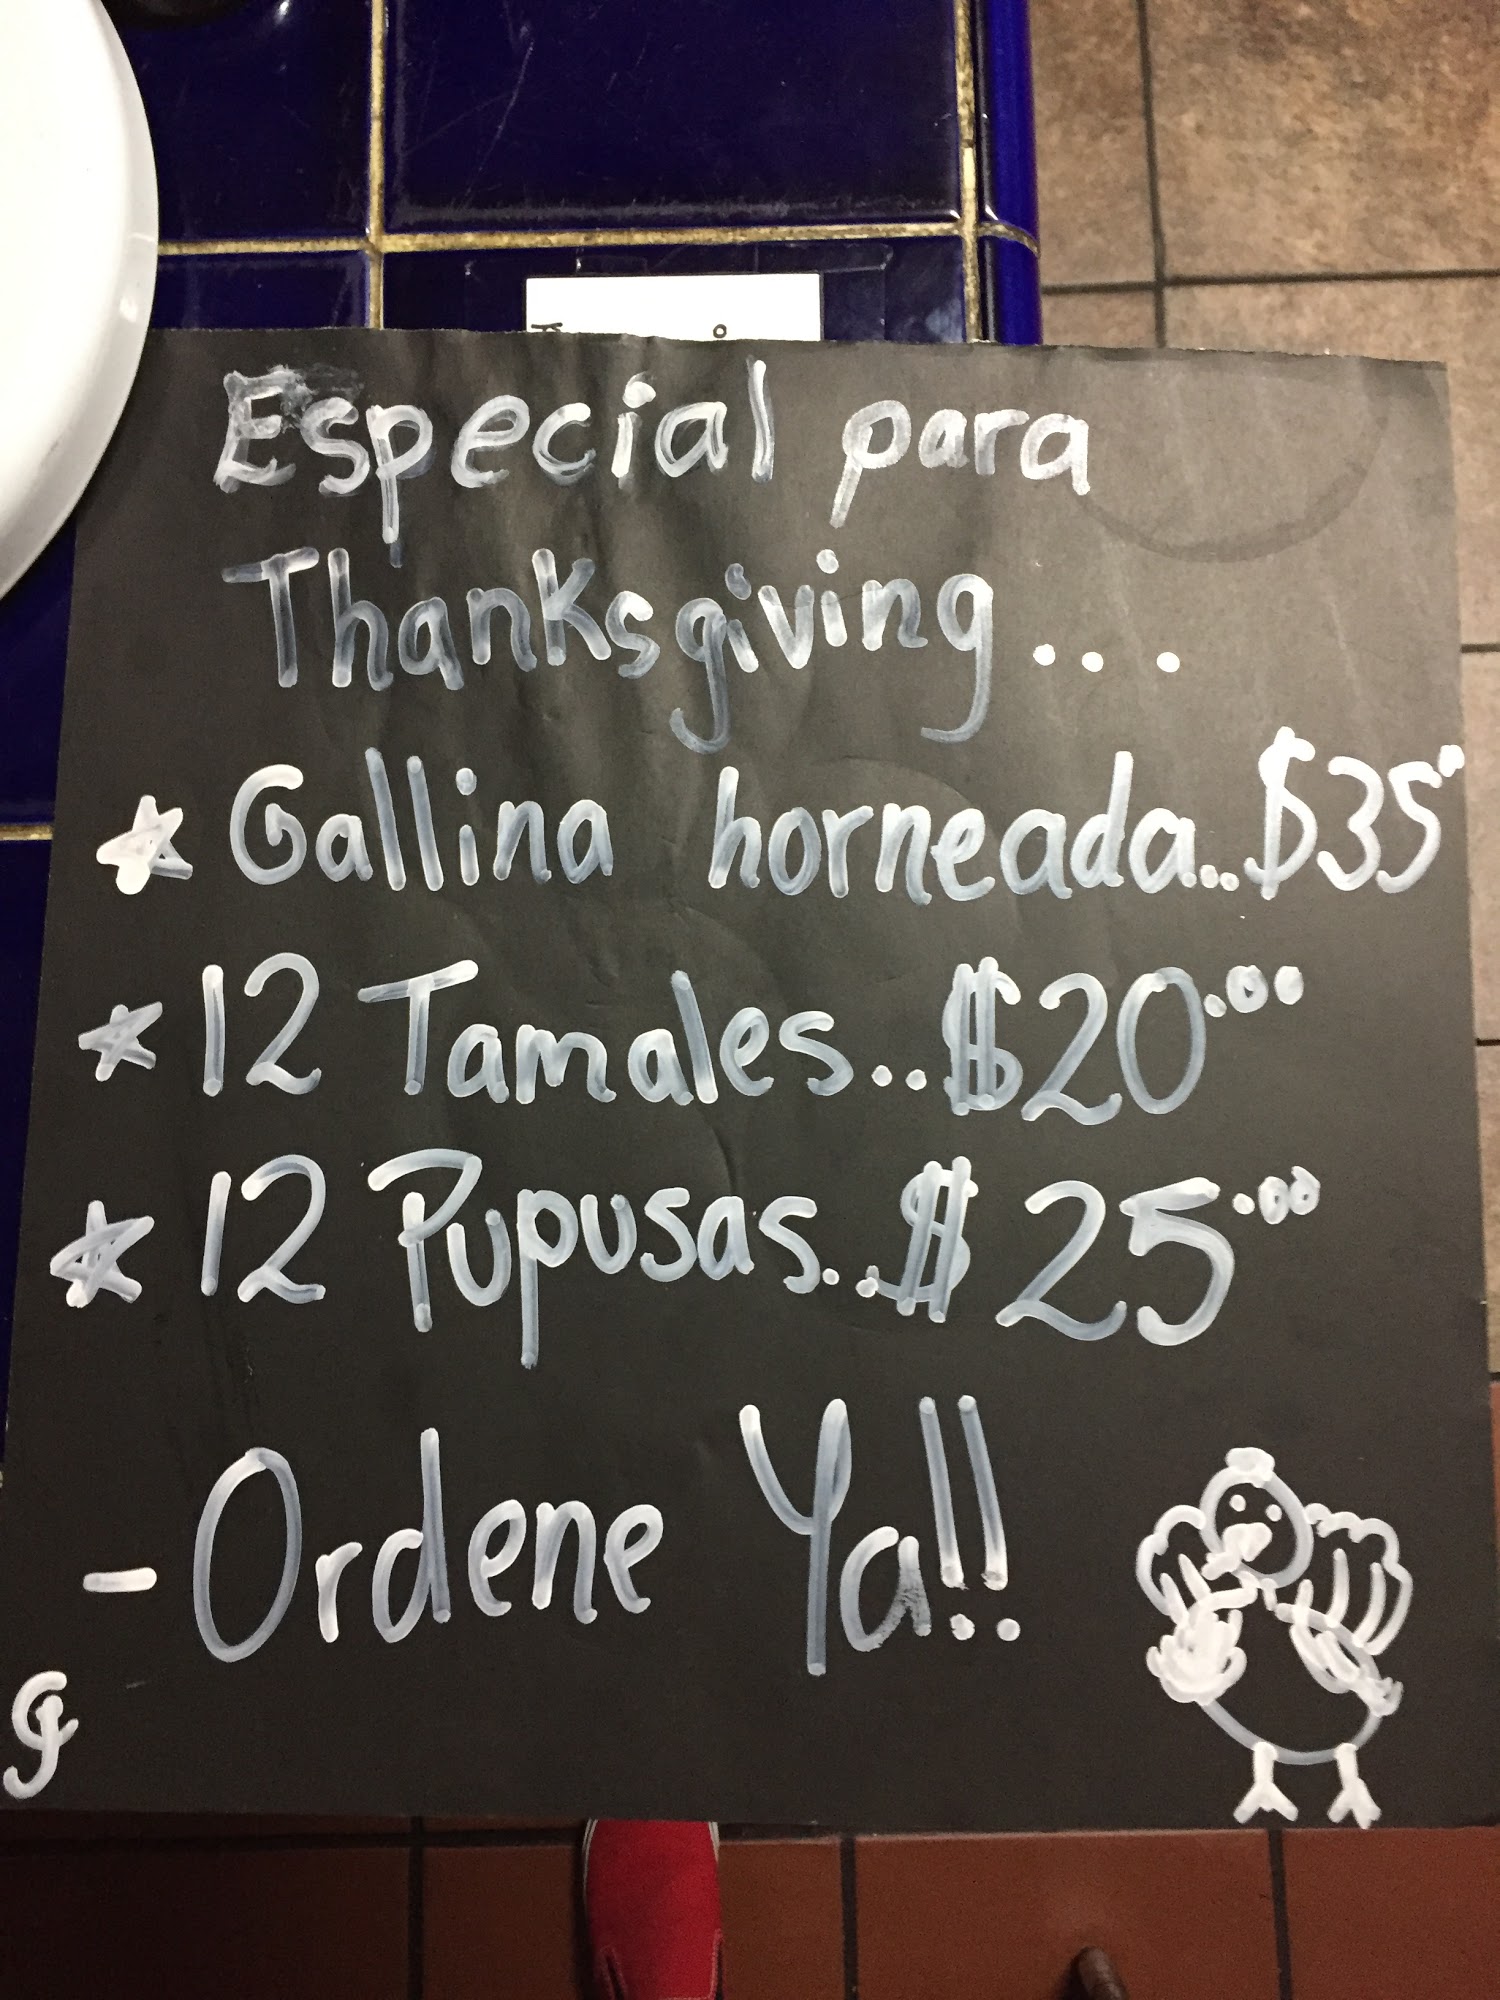 Especial para
Thanksgiving....
Gallina horneada...$35
12 Tamales..$20.00
12 Pupusas..$25.00
- Ordene Ya!!